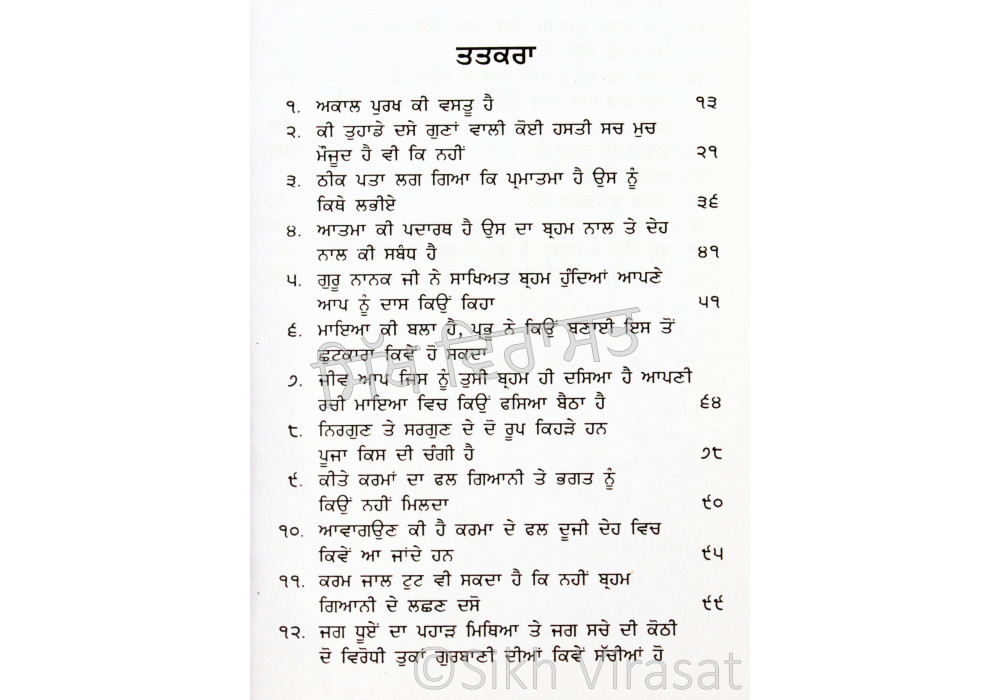 ਤਤਕਰਾ
੧. ਅਕਾਲ ਪੁਰਖ ਕੀ ਵਸਤੂ ਹੈ ੧੩
੨. ਕੀ ਤੁਹਾਡੇ ਦਸੇ ਗੁਣਾਂ ਵਾਲੀ ਕੋਈ ਹਸਤੀ ਸਚ ਮੁਚ
ਮੌਜੂਦ ਹੈ ਵੀ ਕਿ ਨਹੀਂ ੨੧
੩. ਠੀਕ ਪਤਾ ਲਗ ਗਿਆ ਕਿ ਪ੍ਰਮਾਤਮਾ ਹੈ ਉਸ ਨੂੰ
ਕਿਥੇ ਲਭੀਏ ੩੬
੪. ਆਤਮਾ ਕੀ ਪਦਾਰਥ ਹੈ ਉਸ ਦਾ ਬ੍ਰਹਮ ਨਾਲ ਤੇ ਦੇਹ
ਨਾਲ ਕੀ ਸਬੰਧ ਹੈ ੪੧
੫. ਗੁਰੂ ਨਾਨਕ ਜੀ ਨੇ ਸਾਖਿਅਤ ਬ੍ਰਹਮ ਹੁੰਦਿਆਂ ਆਪਣੇ
ਆਪ ਨੂੰ ਦਾਸ ਕਿਉਂ ਕਿਹਾ ੫੧
੬. ਮਾਇਆ ਕੀ ਬਲਾ ਹੈ, ਪ੍ਰਭੂ ਨੇ ਕਿਉਂ ਬਣਾਈ ਇਸ ਤੋਂ
ਛਟਕਾਰਾ ਕਿਵੇਂ ਹੋ ਸਕਦਾ
ਸਿੱਖ ਵਿਰਾਸਤ
੭. ਜੀਵ ਆਪ ਜਿਸ ਨੂੰ ਤੁਸੀ ਬ੍ਰਹਮ ਹੀ ਦਸਿਆ ਹੈ ਆਪਣੀ
ਰਚੀ ਮਾਇਆ ਵਿਚ ਕਿਉਂ ਫਸਿਆ ਬੈਠਾ ਹੈ ੬੪
੮. ਨਿਰਗੁਣ ਤੇ ਸਰਗੁਣ ਦੇ ਦੋ ਰੂਪ ਕਿਹੜੇ ਹਨ
ਪੂਜਾ ਕਿਸ ਦੀ ਚੰਗੀ ਹੈ ੭੮
੯. ਕੀਤੇ ਕਰਮਾਂ ਦਾ ਫਲ ਗਿਆਨੀ ਤੇ ਭਗਤ ਨੂੰ
ਕਿਉਂ ਨਹੀਂ ਮਿਲਦਾ ੯੦
੧੦. ਆਵਾਗਉਣ ਕੀ ਹੈ ਕਰਮਾ ਦੇ ਫਲ ਦੂਜੀ ਦੇਹ ਵਿਚ
ਕਿਵੇਂ ਆ ਜਾਂਦੇ ਹਨ ੯੫
੧੧. ਕਰਮ ਜਾਲ ਟੁਟ ਵੀ ਸਕਦਾ ਹੈ ਕਿ ਨਹੀਂ ਬ੍ਰਹਮ
ਗਿਆਨੀ ਦੇ ਲਛਣ ਦਸੋ ੯੯
੧੨. ਜਗ ਧੂਏਂ ਦਾ ਪਹਾੜ ਮਿਥਿਆ ਤੇ ਜਗ ਸਚੇ ਦੀ ਕੋਠੀ
ਦੋ ਵਿਰੋਧੀ ਤੁਕਾਂ ਗੁਰਬਾਣੀ ਦੀਆਂ ਕਿਵੇਂ ਸੱਚੀਆਂ ਹੋ
©Sikh Virasat